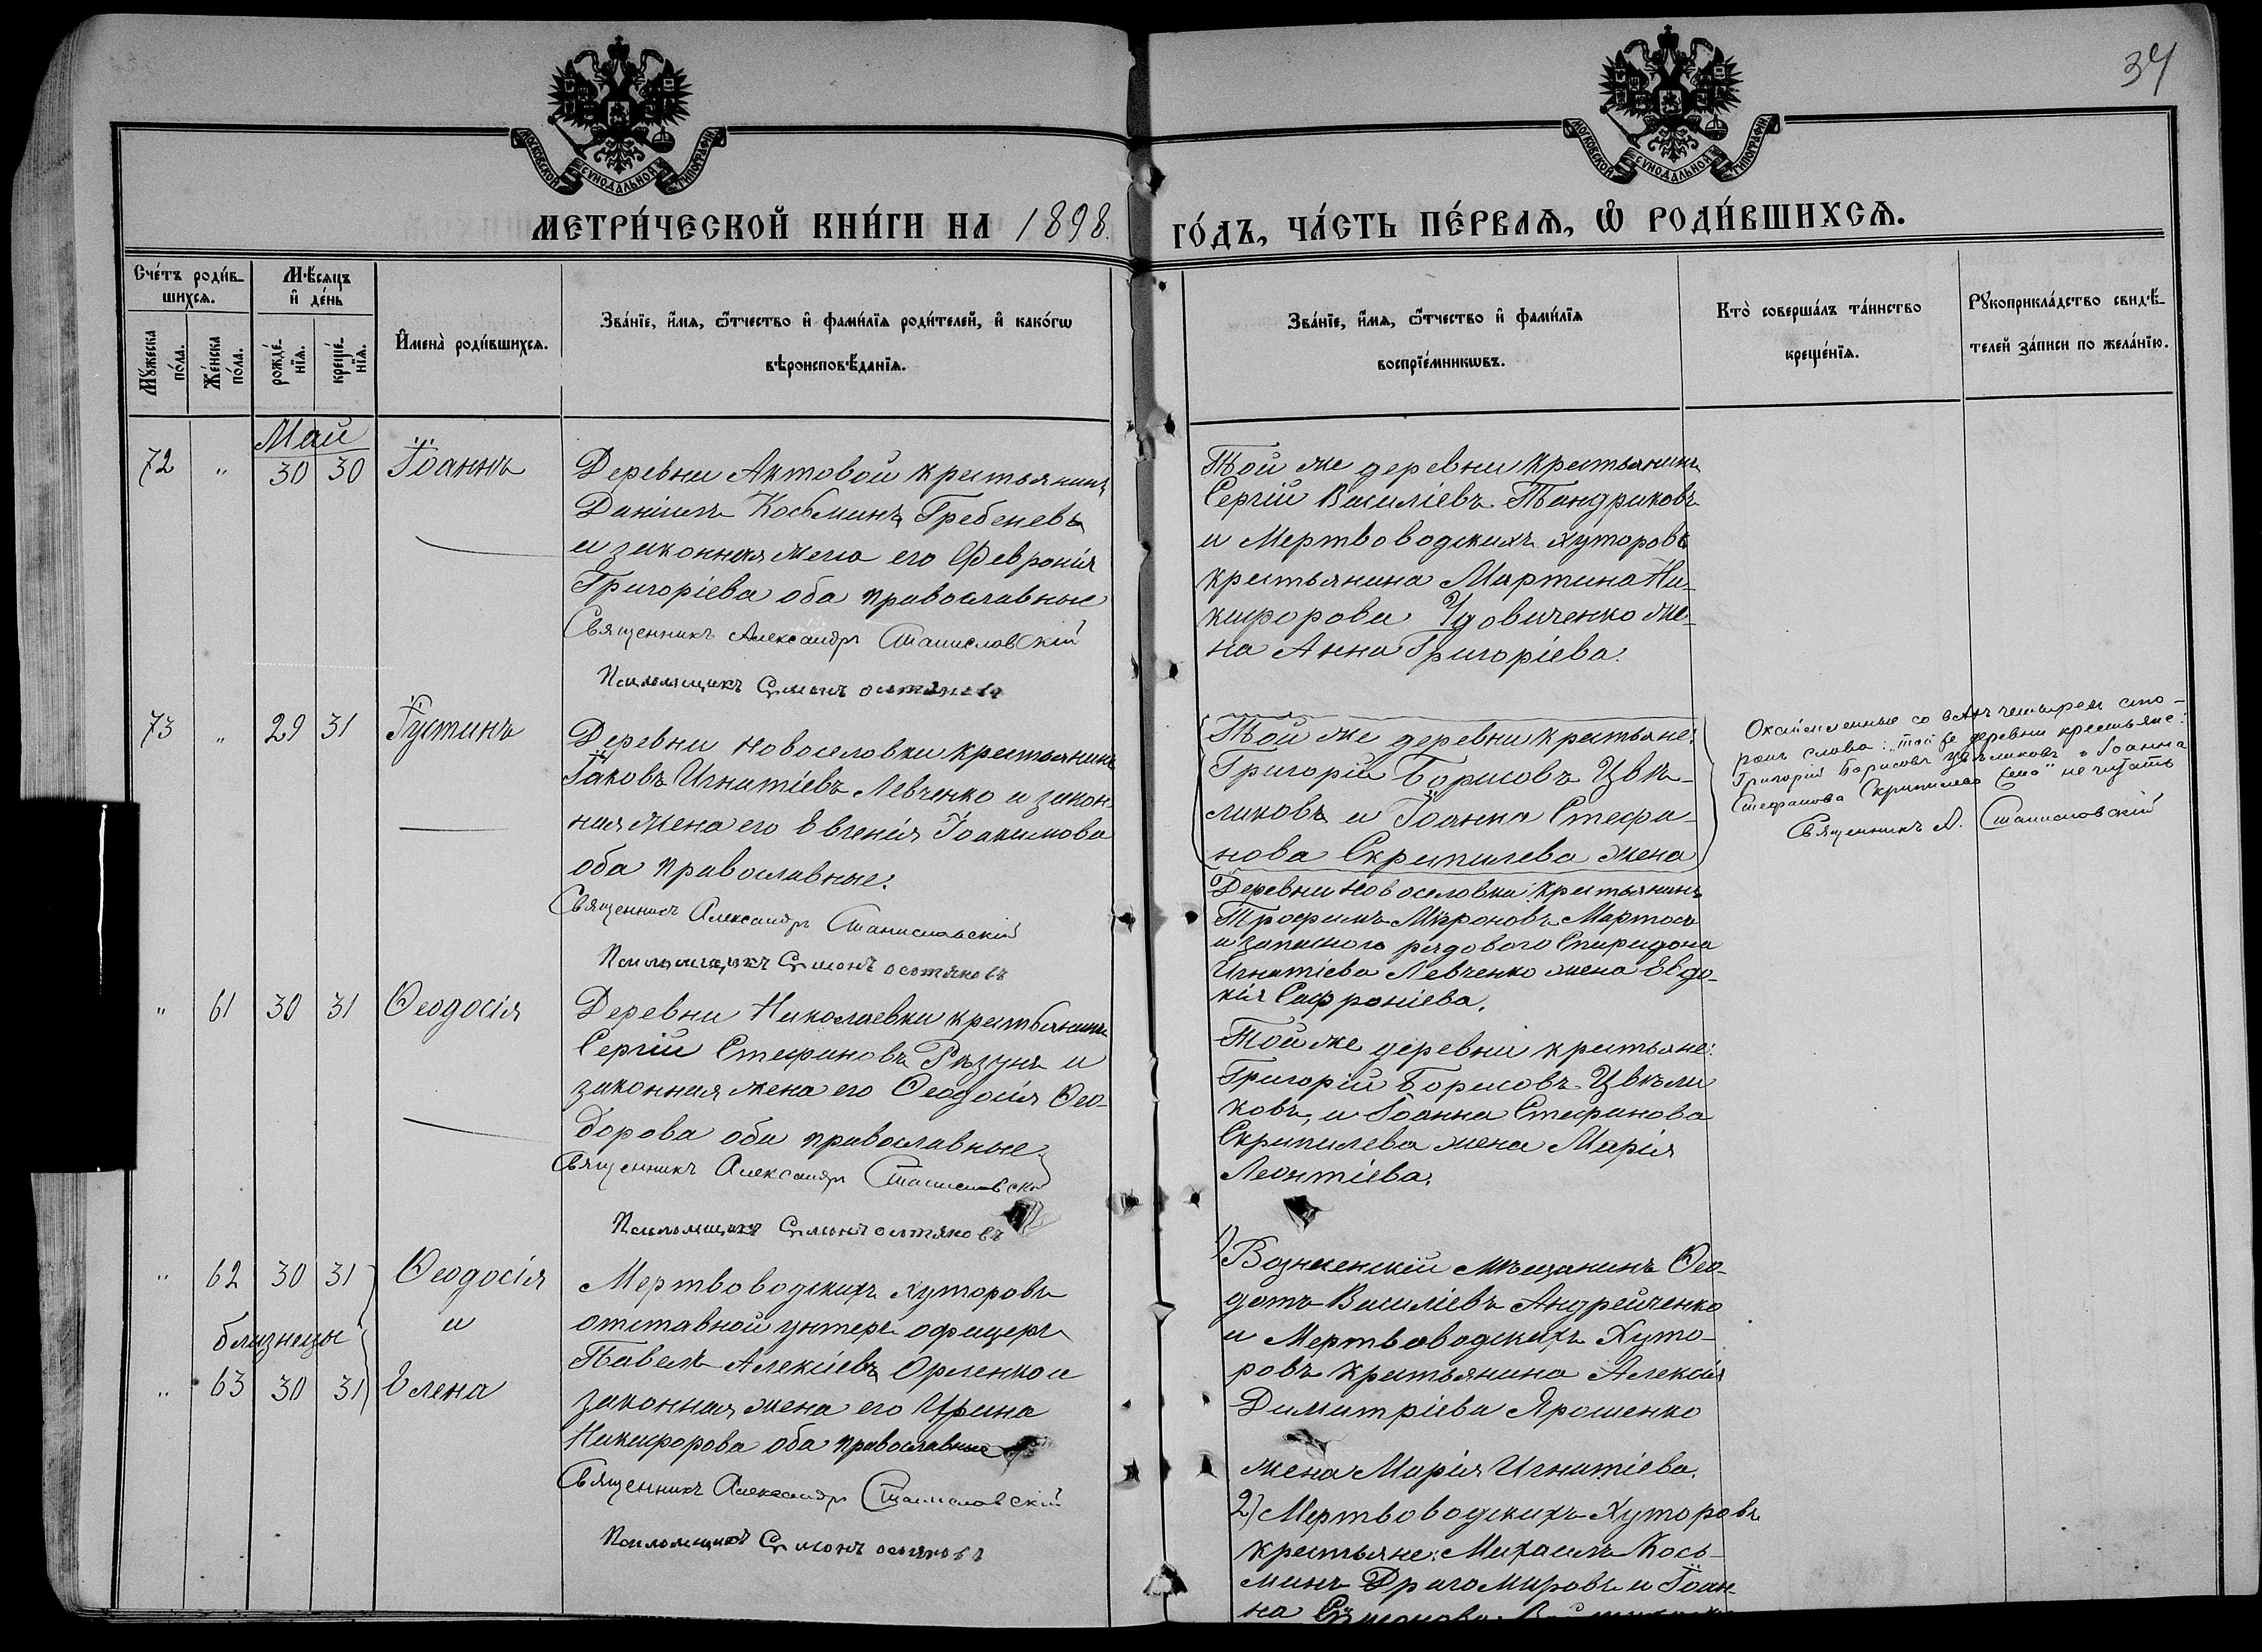 34
МОСКОВСКОЙ СѴНОДАЛЬНОЙ ТИПОГРАФІИ
МОСКОВСКОЙ СѴНОДАЛЬНОЙ ТИПОГРАФІИ
МЕТРИ́ЧЕСКОЙ КНИ́ГИ НА 1898.
ГО́ДЪ, ЧА́СТЬ ПЕ́РВАѦ, Ѽ РОДИ́ВШИХСѦ.
Сче́тъ роди́в-
шихсѧ.
Мꙋ́жеска по́ла.
Же́нска по́ла.
Мѣ́сѧцъ
и҆ де́нь
рожде́-нїѧ.
креще́-нїѧ.
И҆мена̀ роди́вшихсѧ.
Зва́нїе, и҆́мѧ, ѻ҆́тчество и҆ фами́лїѧ роди́телей, и҆ како́гѡ
вѣроисповѣ́данїѧ.
Зва́нїе, и҆́мѧ, ѻ҆́тчество и҆ фами́лїѧ
воспрїе́мникѡвъ.
Кто̀ соверша́лъ та́инство
креще́нїѧ.
Рꙋкоприкла́дство свидѣ́-
телей за́писи по жела́нїю.
Май
72 " 30 30 Іоаннъ
Деревни Актовой крестьянинъ
Даніилъ Косьминъ Гребеневъ
и законная жена его Февронія
Григоріева оба православные
Священникъ Александръ Станиславскій
Псаломщикъ Сѵмонъ
Той же деревни крестьянинъ
Сергій Василіевъ Тандриковъ
и Мертвоводскихъ хуторовъ
крестьянина Мартина Ни-
кифорова Удовиченко же-
на Анна Григоріева.
73 " 29 31 Іустинъ
Деревни Новоселовки крестьянинъ
Іаковъ Игнатіевъ Левченко и закон-
ная жена его Евгенія Іоакимова
оба православные.
Священникъ Александръ Станиславскій
Псаломщикъ Сѵмонъ
Той же деревни крестьяне:
Григорій Борисовъ Цвѣ-
ликовъ и Іоанна Стефа-
нова Скрипилева жена
Деревни Новоселовки крестьянинъ
Трофимъ Мѵроновъ Мартосъ
и запаснаго рядового Спиридона
Игнатіева Левченко жена Евдо-
кія Сафроніева.
Окаймленные со всѣхъ четырехъ сто-
ронъ слова: "той же деревни крестьяне:
Григорій Борисовъ Цвѣликовъ и Іоанна
Стефанова Скрипилева жена" не читать
Священникъ А. Станиславскій
" 61 30 31 Ѳеодосія
Деревни Николаевки крестьянинъ
Сергій Стефановъ Рѣзунъ и
законная жена его Ѳеодосія Ѳео-
дорова оба православные
Священникъ Александръ Станиславскій
Псаломщикъ Сѵмонъ
Той же деревни крестьяне:
Григорій Борисовъ Цвѣли
ковъ, и Іоанна Стефанова
Скрипилева жена Марія
Леонтіева.
" 62 30 31 Ѳеодосія
близнецы и
" 63 30 31 Елена
Мертвоводскихъ хуторовъ
отставной унтеръ офицеръ
Павелъ Алексіевъ Орленко и
законная жена его Ирина
Никифорова оба православные
Священникъ Александръ Станиславскій
Псаломщикъ Сѵмонъ
1) Вознесенскій мѣщанинъ Ѳео-
дотъ Василіевъ Андрейченко
и Мертвоводскихъ Хуто-
ровъ крестьянина Алексія
Димитріева Ярошенко
жена Марія Игнатіева.
2) Мертвоводскихъ Хуторовъ
крестьяне: Михаилъ Кось-
минъ Драгомировъ и Іоан-
на